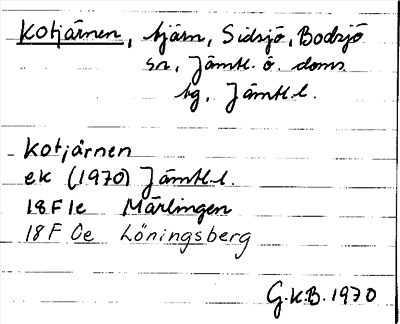 Kotjärnen, tjärn, Sidsjö, Bodsjö
sn, Jämtl. ö. doms.
tg, Jämtl.l.
Kotjärnen
ek (1970) Jämtl.l.
18F1e Mårlingen
18F0e Löningsberg
G.K.B. 1970